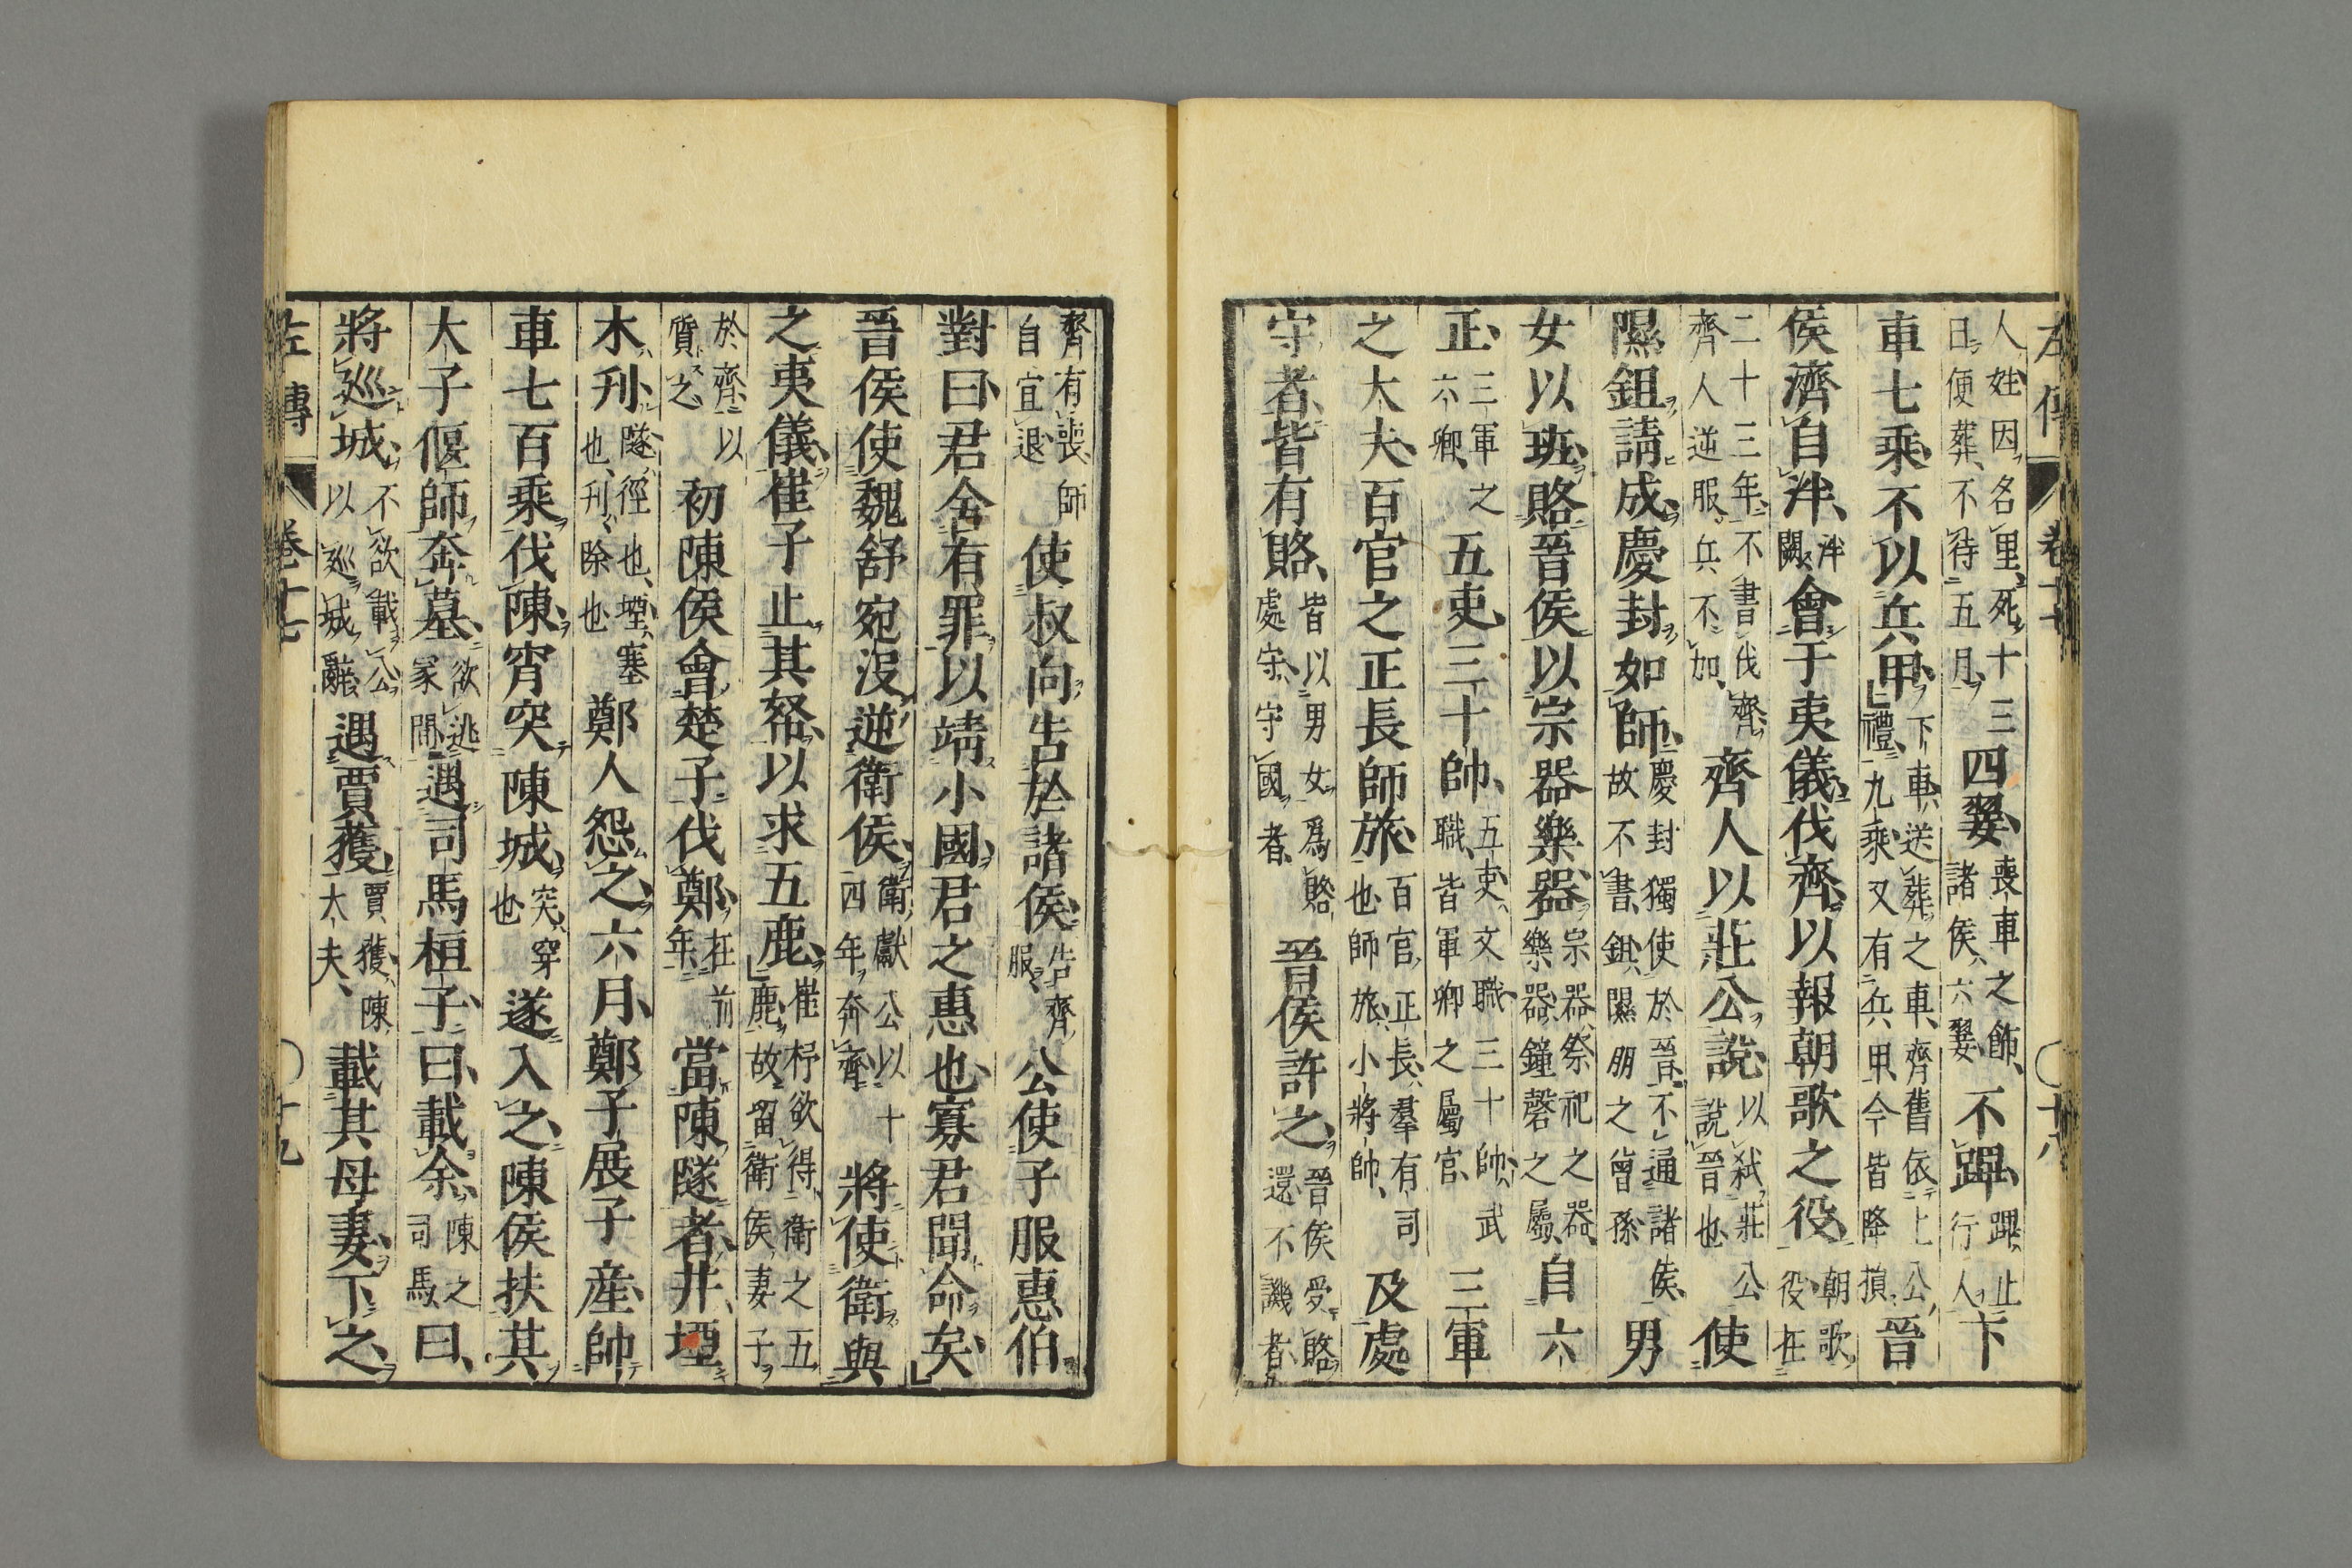 左傳 卷十七 〇十八
人姓因名里死十三日便葬不待五月四翣喪車之飾諸侯六翣不蹕蹕止行人下
車七乘不以兵甲下車送葬之車齊舊依上公禮九乘又有兵甲今皆降損晉
侯濟自泮泮闕會于夷儀伐齊以報朝歌之役朝歌役在
二十三年不書伐齊齊人逆服兵不加齊人以莊公說以弒莊公說晉也使
隰鉏請成慶封如師慶封獨使於晉不通諸侯故不書鉏隰朋之曾孫男
女以班賂晉侯以宗器樂器宗器祭祀之器樂器鐘磬之屬自六
正三軍之六卿五吏三十帥五吏文職三十帥武職皆軍卿之屬官三軍
之大夫百官之正長師旅百官正長羣有司也師旅小將帥及處
守者皆有賂皆以男女爲賂處守守國者晉侯許之晉侯受賂還不譏者
齊有喪師自宜退使叔向告於諸侯告齊服公使子服惠伯
對曰君舍有罪以靖小國君之惠也寡君聞命矣
晉侯使魏舒宛沒逆衛侯衛獻公以十四年奔齊將使衛與
之夷儀崔子止其帑以求五鹿崔杼欲得衛之五鹿故留衛侯妻子
於齊以質之初陳侯會楚子伐鄭在前年當陳隧者井堙
木刊隧徑也堙塞也刊除也鄭人怨之六月鄭子展子產帥
車七百乘伐陳宵突陳城突穿也遂入之陳侯扶其
大子偃師奔墓欲逃冢間遇司馬桓子曰載余陳之司馬曰
將巡城不欲載公以巡城辭遇賈獲賈獲陳大夫載其母妻下之
左傳 卷十七 〇十九